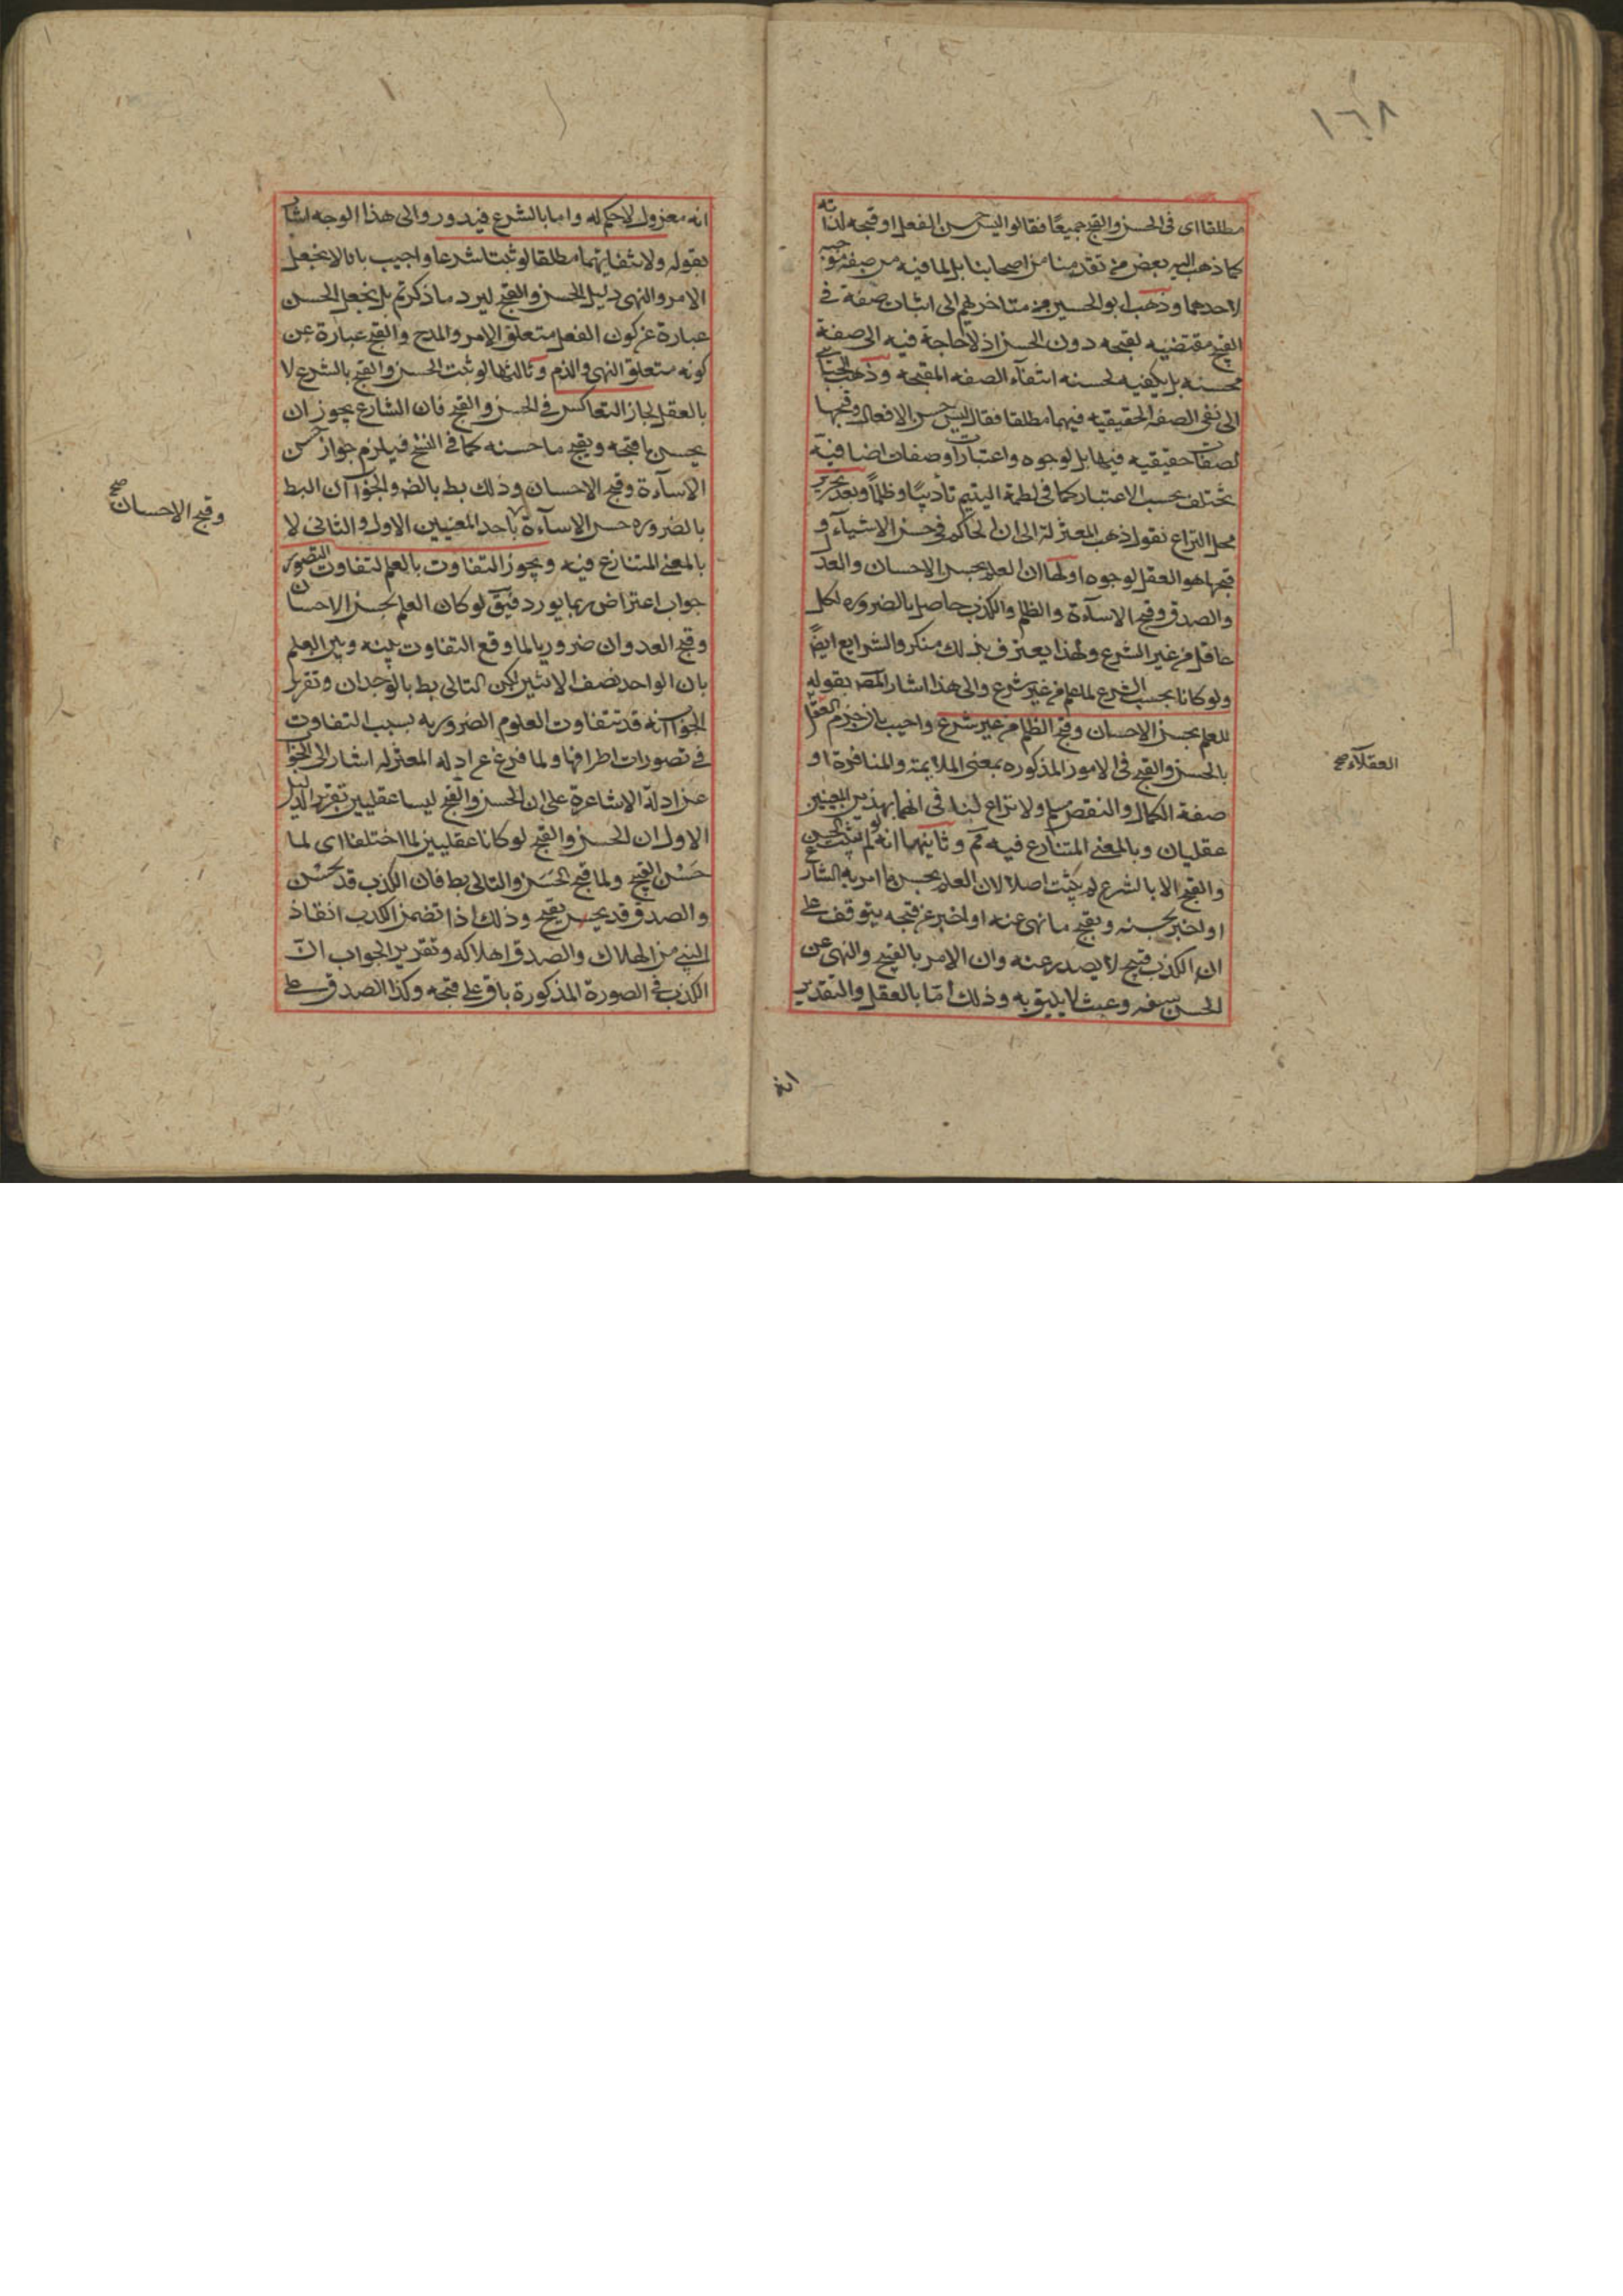 ١٦٨
مطلقا اى فى الحسن والقبح جميعًا فقالوا ليس حسن الفعل او قبحه لذاته
كما ذهب اليه بعض من تقدمنا من اصحابنا بل لما فيه من صفة موجبه
لاحدهما وذهب ابو الحسين من متاخريهم الى اثبات صفة فى
القبح مقتضيه لقبحه دون الحسن اذ لا حاجة فيه الى صفة
محسنه بل يكفيه لحسنه انتفآء الصفه المقبحه وذهب الجبائى
الى نفى الصفه الحقيقيه فيهما مطلقا فقال ليس حسن الافعال وقبحها
لصفات حقيقيه فيها بل لوجوه واعتبارات وصفات اضافيّة
تختلف بحسب الاعتبار كما فى لطمة اليتيم تأديبًا وظلمًا وبعد تحرير
محل النزاع نقول ذهب المعتزلة الى ان الحاكم فى حسن الاشيآء و
قبحها هو العقل لوجوه اولها ان العلم بحسن الاحسان والعدل
والصدق وقبح الاسآءة والظلم والكذب حاصل بالضروره لكل
عاقل من غير الشرع ولهذا يعترف بذلك منكر والشرايع ايضً
ولو كانا بحسب الشرع لما علم من غير شرع والى هذا اشار المصـ بقوله
للعلم بحسن الاحسان وقبح الظلم من غير شرع واجيب بان جزم العقلا
العقلآء صح
بالحسن والقبح فى الامور المذكوره بمعنى الملايمة والمنافرة او
صفة الكمال والنقص مسلم ولا نزاع لنا فى انهما بهذين المعنيين
عقليان وبالمعنى المتنازع فيه مم وثانيهما انه لو لم يثبت الحسن
والقبح الا بالشرع لم يثبت اصلا لان العلم بحسن ما امر به الشارع
او اخبر بحسنه وبقبح ما نهى عنه او اخبر عن قبحه يتوقف على
ان الكذب قبيح لا يصدر عنه وان الامر بالقبيح والنهى عن
الحسن سفه وعبث لا يليق به وذلك امّا بالعقل والتقدير
انه
انه معزول لا حكم له واما بالشرع فيدور والى هذا الوجه اشار
بقوله ولانتفائهما مطلقا لو ثبتا شرعا واجيب بانا لا نجعل
الامر والنهى دليل الحسن والقبح ليرد ما ذكرتم بل نجعل الحسن
عبارة عن كون الفعل متعلق الامر والمدح والقبح عبارة عن
كونه متعلق النهى والذم وثالثها لو ثبت الحسن والقبح بالشرع لا
بالعقل لجاز التعاكس فى الحسن والقبح فان الشارع يجوز ان
يحسن ما قبحه ويقبح ما حسنه كما فى النسخ فيلزم جواز حسن
الاسآءة وقبح الاحسان وذلك بط بالضـ والجواب ان البط
بالضروره حسن الاسآءة باحد المعنيين الاول والثانى لا
وقبح الاحسان صح
بالمعنى المتنازع فيه ويجوز التفاوت بالعلم لتفاوت التصور
جواب اعتراض ربما يورد فيق لو كان العلم بحسن الاحسان
وقبح العدوان ضروريا لما وقع التفاوت بينه وبين العلم
بان الواحد نصف الاثنين لكن التالى بط بالوجدان وتقرير
الجواب انه قد تتفاوت العلوم الضروريه بسبب التفاوت
فى تصورات اطرافها ولما فرغ عن ادله المعتزله اشار الى الجواب
عن ادلة الاشاعرة على ان الحسن والقبح ليسا عقليين تقرير الدليل
الاول ان الحسن والقبح لو كانا عقليين لما اختلفا اى لما
حَسُن القبح ولما قبح الحَسَن والتالى بط فان الكذب قد يحسُن
والصدق قد يقبح وذلك اذا تضمن الكذب انقاذ
النبى من الهلاك والصدق اهلاكه وتقرير الجواب ان
الكذب فى الصورة المذكورة باق على قبحه وكذا الصدق على